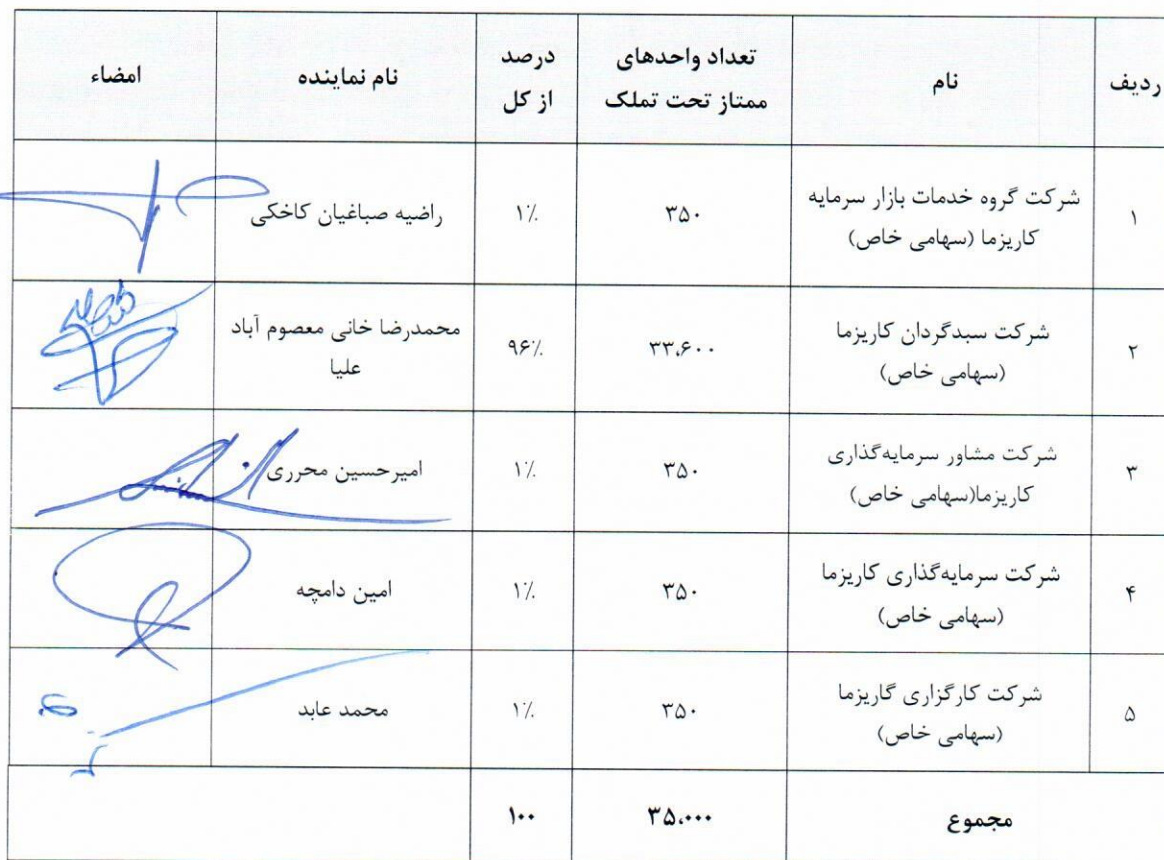 ردیف نام تعداد واحدهای ممتاز تحت تملک درصد از کل نام نماینده امضاء
۱ شرکت گروه خدمات بازار سرمایه کاریزما (سهامی خاص) ۳۵۰ ۱٪ راضیه صباغیان کاخکی
۲ شرکت سبدگردان کاریزما (سهامی خاص) ۳۳،۶۰۰ ۹۶٪ محمدرضا خانی معصوم آباد علیا
۳ شرکت مشاور سرمایه‌گذاری کاریزما(سهامی خاص) ۳۵۰ ۱٪ امیرحسین محرری
۴ شرکت سرمایه‌گذاری کاریزما (سهامی خاص) ۳۵۰ ۱٪ امین دامچه
۵ شرکت کارگزاری گاریزما (سهامی خاص) ۳۵۰ ۱٪ محمد عابد
مجموع ۳۵،۰۰۰ ۱۰۰